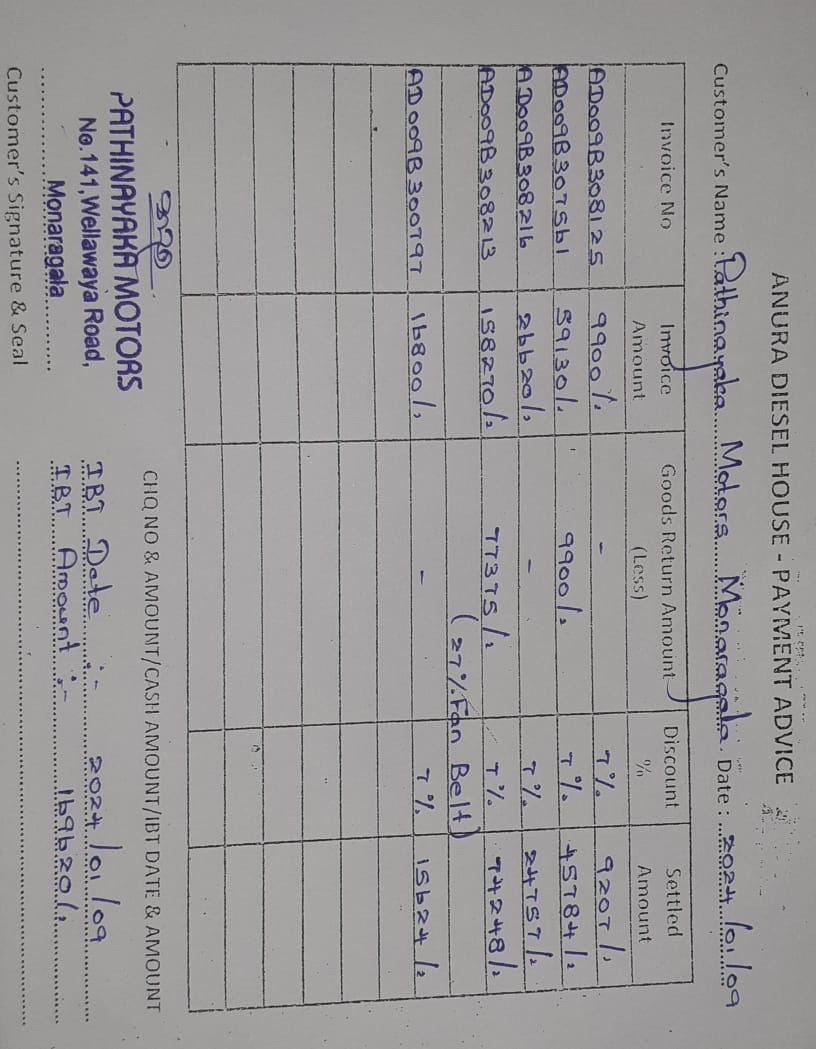 ANURA DIESEL HOUSE - PAYMENT ADVICE
Customer's Name : Pathinayaka Motors Monaragala. Date : 2024/01/09
Invoice No Invoice Amount Goods Return Amount (Less) Discount % Settled Amount
AD009B308125 9900/. - 7% 9207/.
AD009B307561 59130/. 9900/. 7% 45784/.
AD009B308216 26620/. - 7% 24757/.
AD009B308213 158270/. 77375/. 7% 74248/.
(27% Fan Belt)
AD009B300797 16800/. - 7% 15624/.
CHQ NO & AMOUNT/CASH AMOUNT/IBT DATE & AMOUNT
PATHINAYAKA MOTORS
No.141, Wellawaya Road,
Monaragala
Customer's Signature & Seal
IBT Date :- 2024/01/09
IBT Amount :- 169620/.